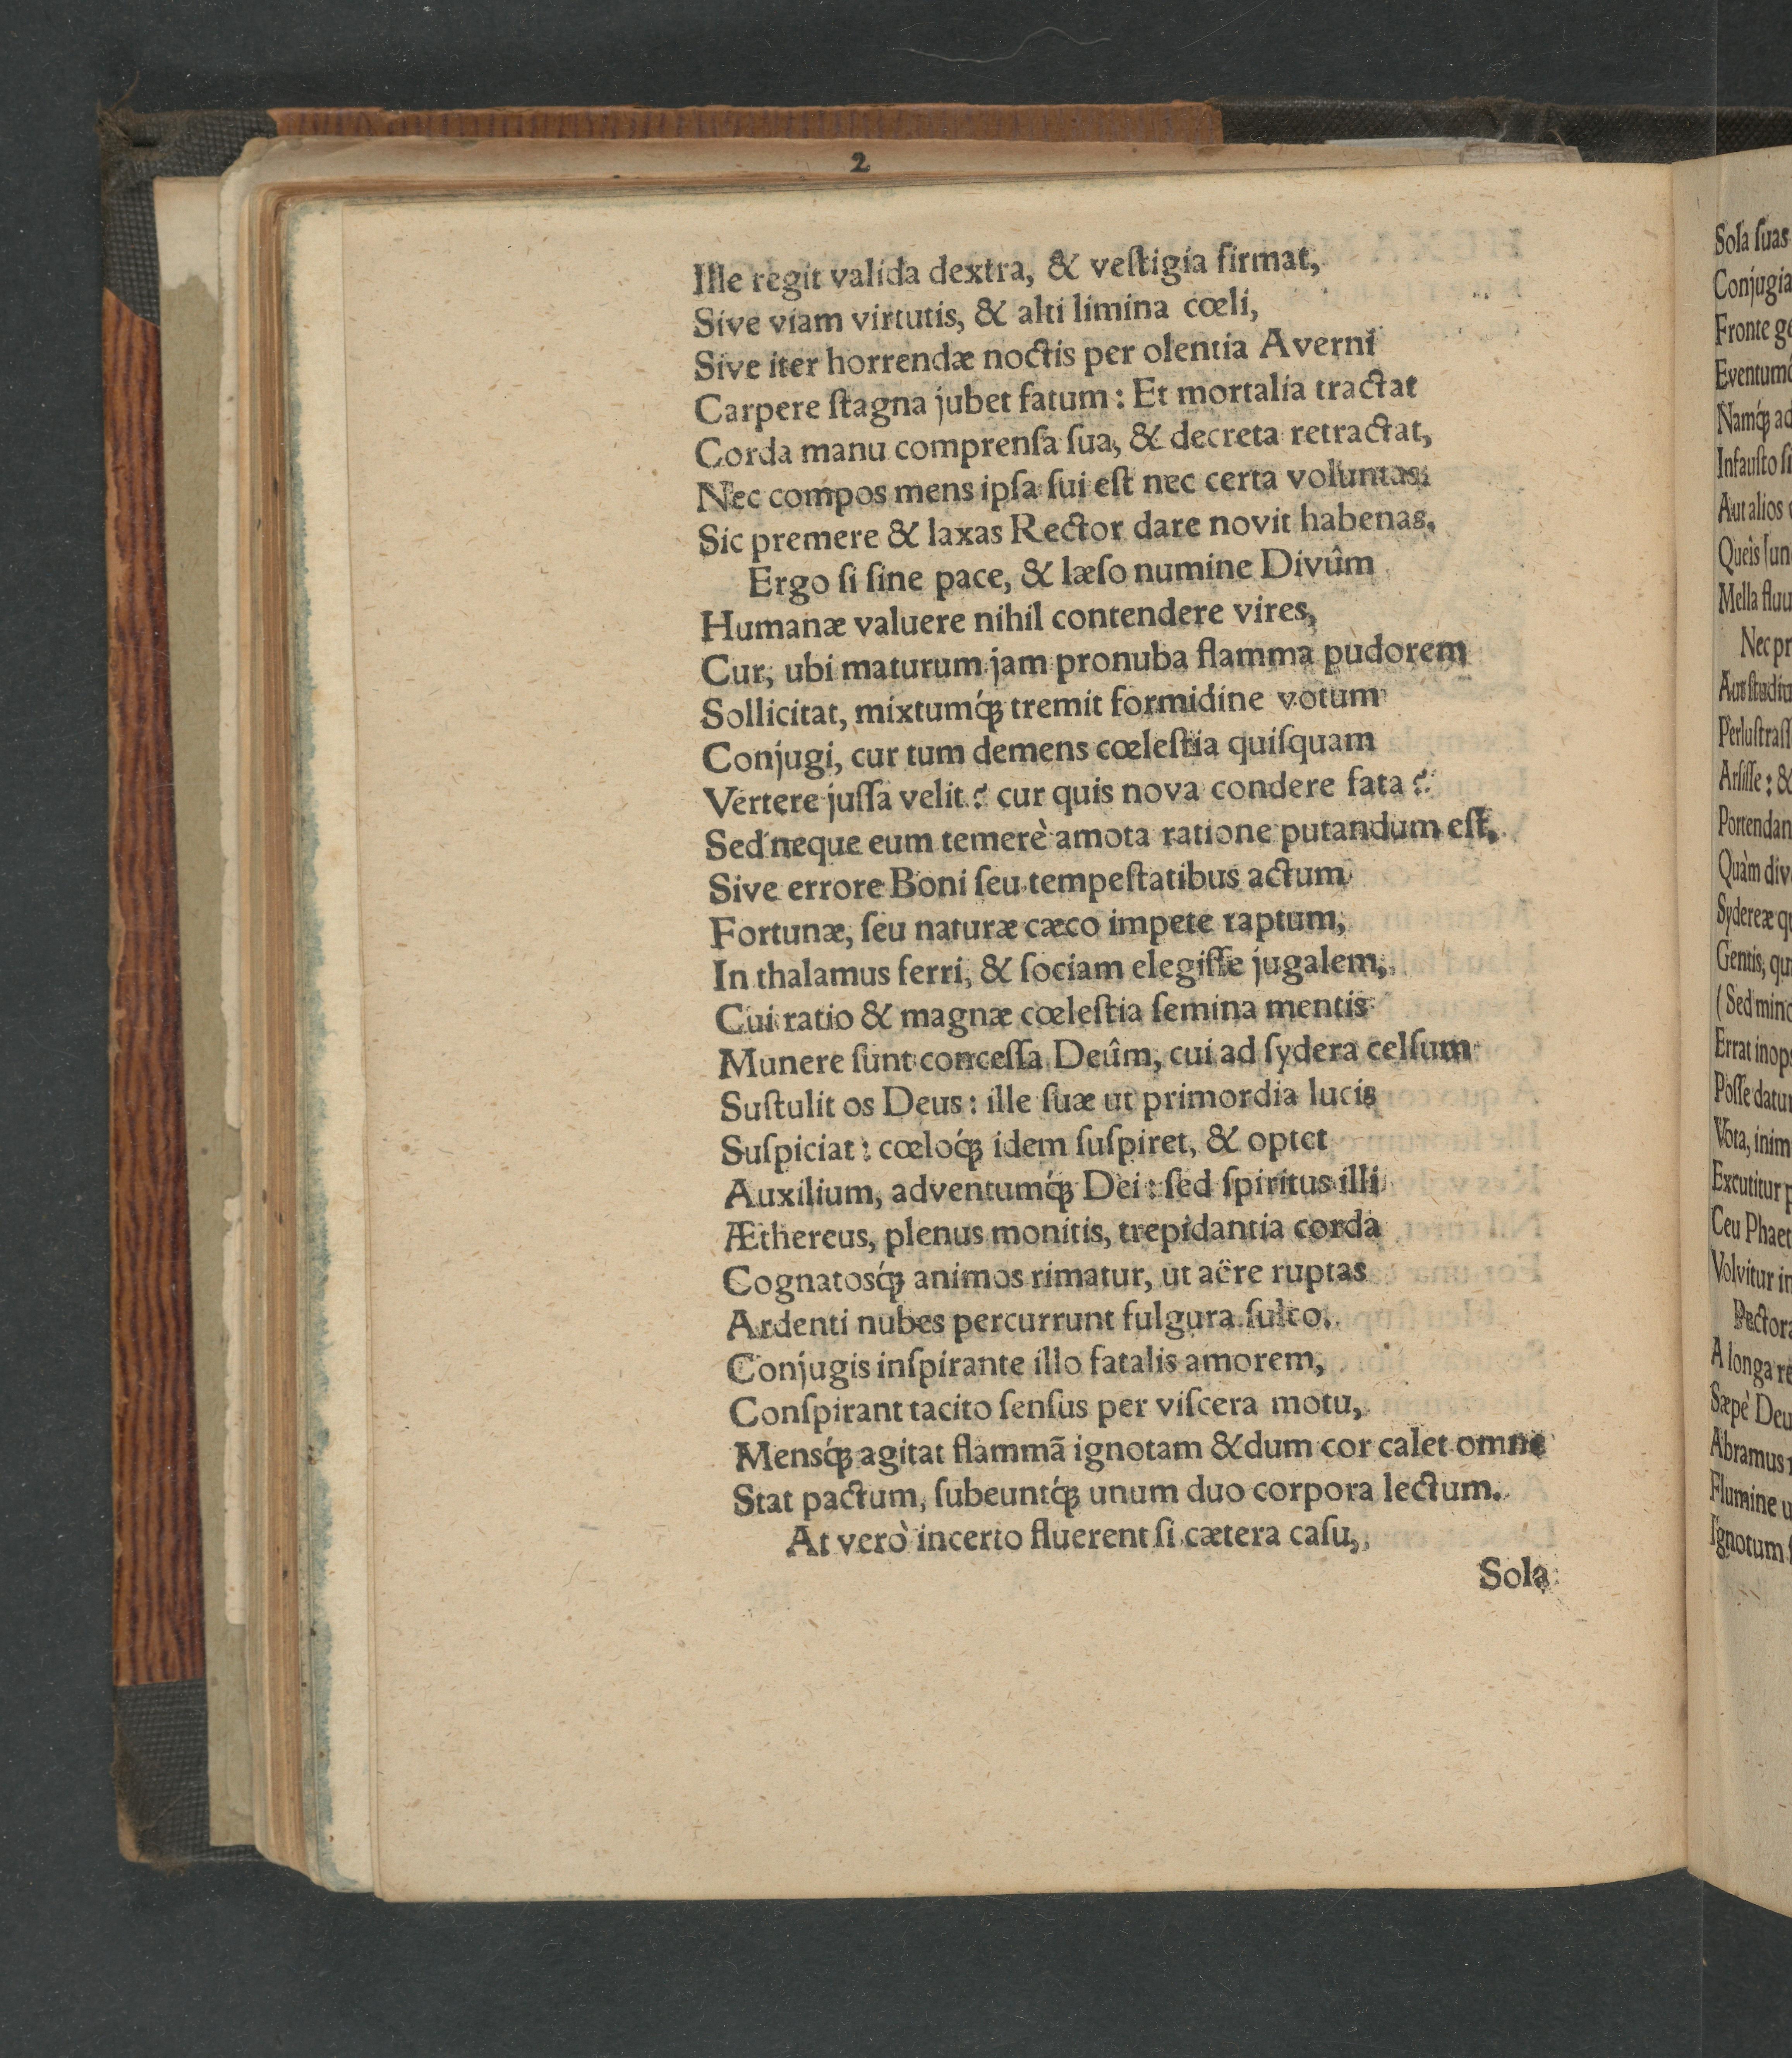 2
Ille regit valida dextra, & veſtigia firmat,
Sive viam virtutis, & alti limina cœli,
Sive iter horrendæ noctis per olentia Averni
Carpere ſtagna jubet fatum: Et mortalia tractat
Corda manu comprenſa ſua, & decreta retractat,
Nec compos mens ipſa ſui eſt nec certa voluntas:
Sic premere & laxas Rector dare novit habenas.
Ergo ſi ſine pace, & læſo numine Divûm
Humanæ valuere nihil contendere vires,
Cur, ubi maturum jam pronuba flamma pudorem
Sollicitat, mixtumq́ꝫ tremit formidine votum
Conjugi, cur tum demens cœleſtia quiſquam
Vertere juſſa velit? cur quis nova condere fata?
Sed neque eum temerè amota ratione putandum eſt,
Sive errore Boni ſeu tempeſtatibus actum
Fortunæ, ſeu naturæ cæco impete raptum,
In thalamus ferri, & ſociam elegiſſe jugalem,
Cui ratio & magnæ cœleſtia ſemina mentis
Munere ſunt conceſſa Deûm, cui ad ſydera celſum
Suſtulit os Deus: ille ſuæ ut primordia lucis
Suſpiciat: cœloq́ꝫ idem ſuſpiret, & optet
Auxilium, adventumq́ꝫ Dei: ſed ſpiritus illi
Æthereus, plenus monitis, trepidantia corda
Cognatosq́ꝫ animos rimatur, ut aëre ruptas
Ardenti nubes percurrunt fulgura ſulco.
Conjugis inſpirante illo fatalis amorem,
Conſpirant tacito ſenſus per viſcera motu,
Mensq́ꝫ agitat flammã ignotam & dum cor calet omne
Stat pactum, ſubeuntq́ꝫ unum duo corpora lectum.
At verò incerto fluerent ſi cætera caſu,
Sola
Sola ſuas
Conjugia
Fronte
Namq́ꝫ
Infauſto
Aut alios
Queìs
Mella
Nec
Aut
Arſiſſe: &
Quàm
Sydereæ
Gentis,
(Sed
Errat
Poſſe
Vota,
Excutitur
Ceu
Volvitur
A longa
Sæpè
Abramus
Flumine
Ignotum